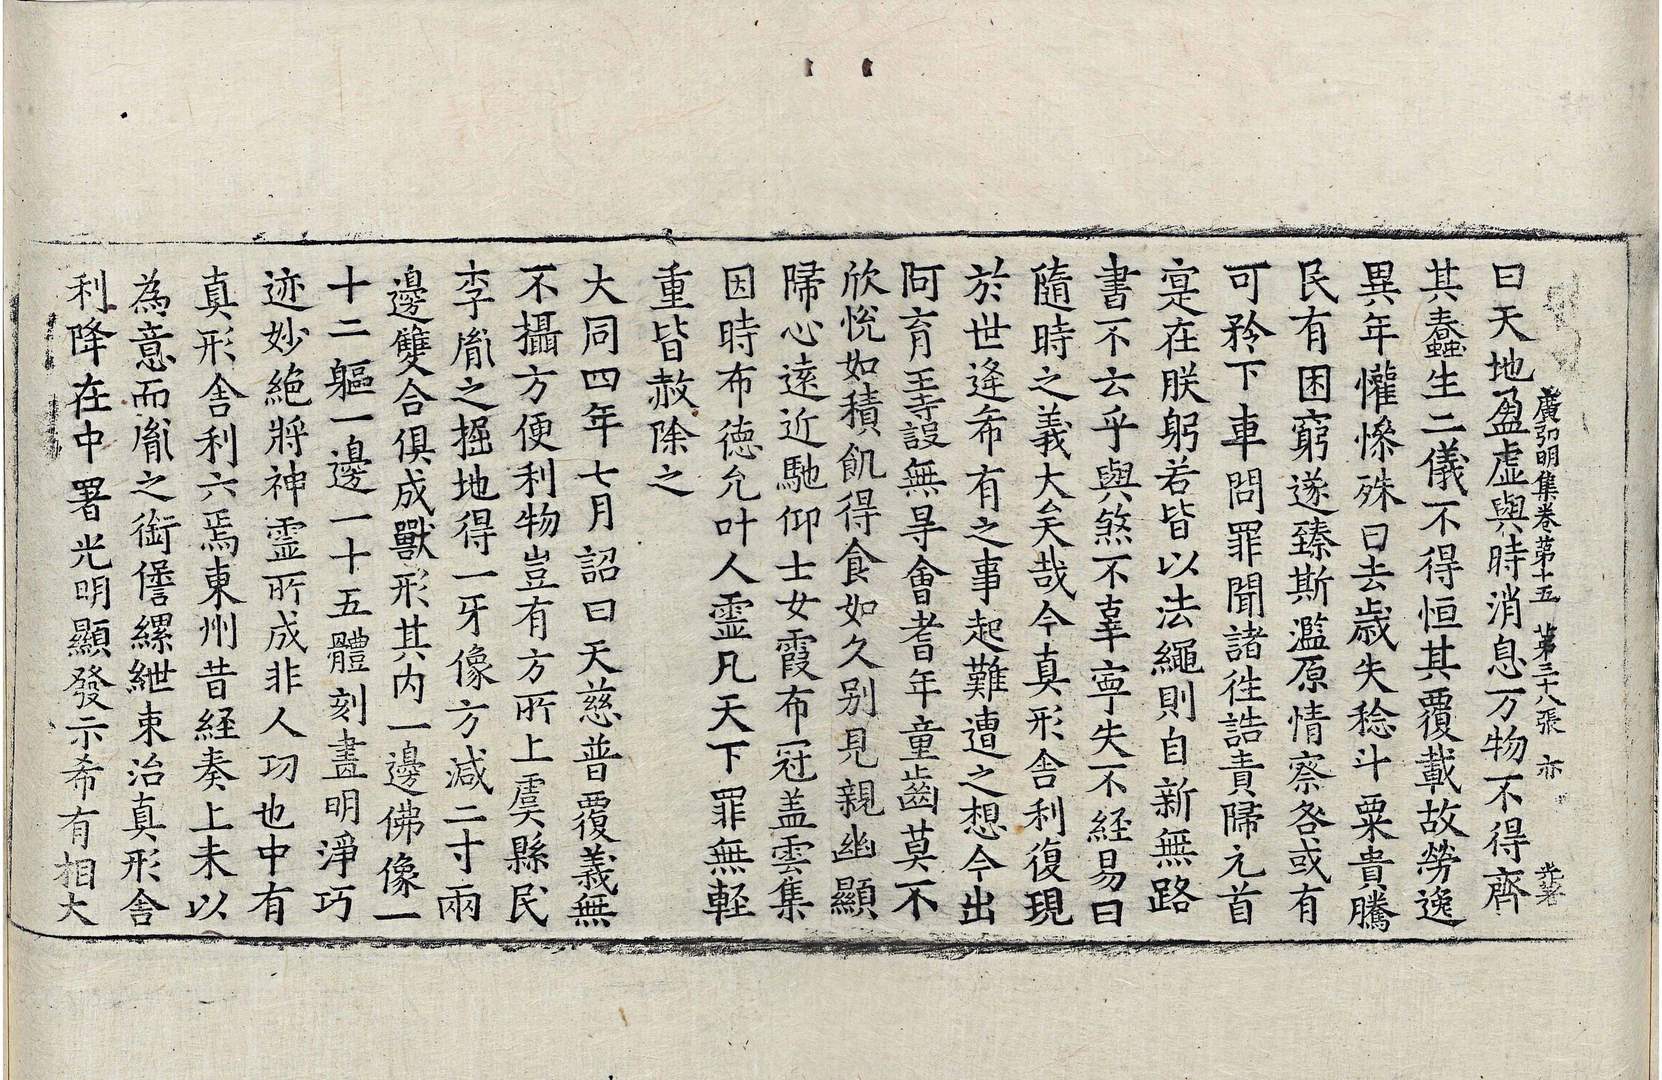 廣弘明集卷第十五 第三十八張 亦
曰天地盈虛與時消息万物不得齊
其蠢生二儀不得恒其覆載故勞逸
異年懽慘殊日去歲失稔斗粟貴騰
民有困窮遂臻斯濫原情察咎或有
可矜下車問罪聞諸往誥責歸元首
寔在朕躬若皆以法繩則自新無路
書不云乎與煞不辜寧失不経易曰
隨時之義大矣哉今真形舎利復現
於世逢希有之事起難遭之想今出
阿育王寺設無㝵會耆年童齒莫不
欣悅如積飢得食如久别見親幽顯
歸心遠近馳仰士女霞布冠盖雲集
因時布德允叶人霊凡天下罪無軽
重皆赦除之
大同四年七月詔曰天慈普覆義無
不攝方便利物豈有方所上虞縣民
李胤之掘地得一牙像方減二寸兩
邊雙合俱成獸形其内一邊佛像一
十二軀一邊一十五體刻畫明淨巧
迹妙絶將神霊所成非人功也中有
真形舎利六焉東州昔経奏上未以
為意而胤之銜愆縲紲東冶真形舎
利降在中署光明顯發示希有相大